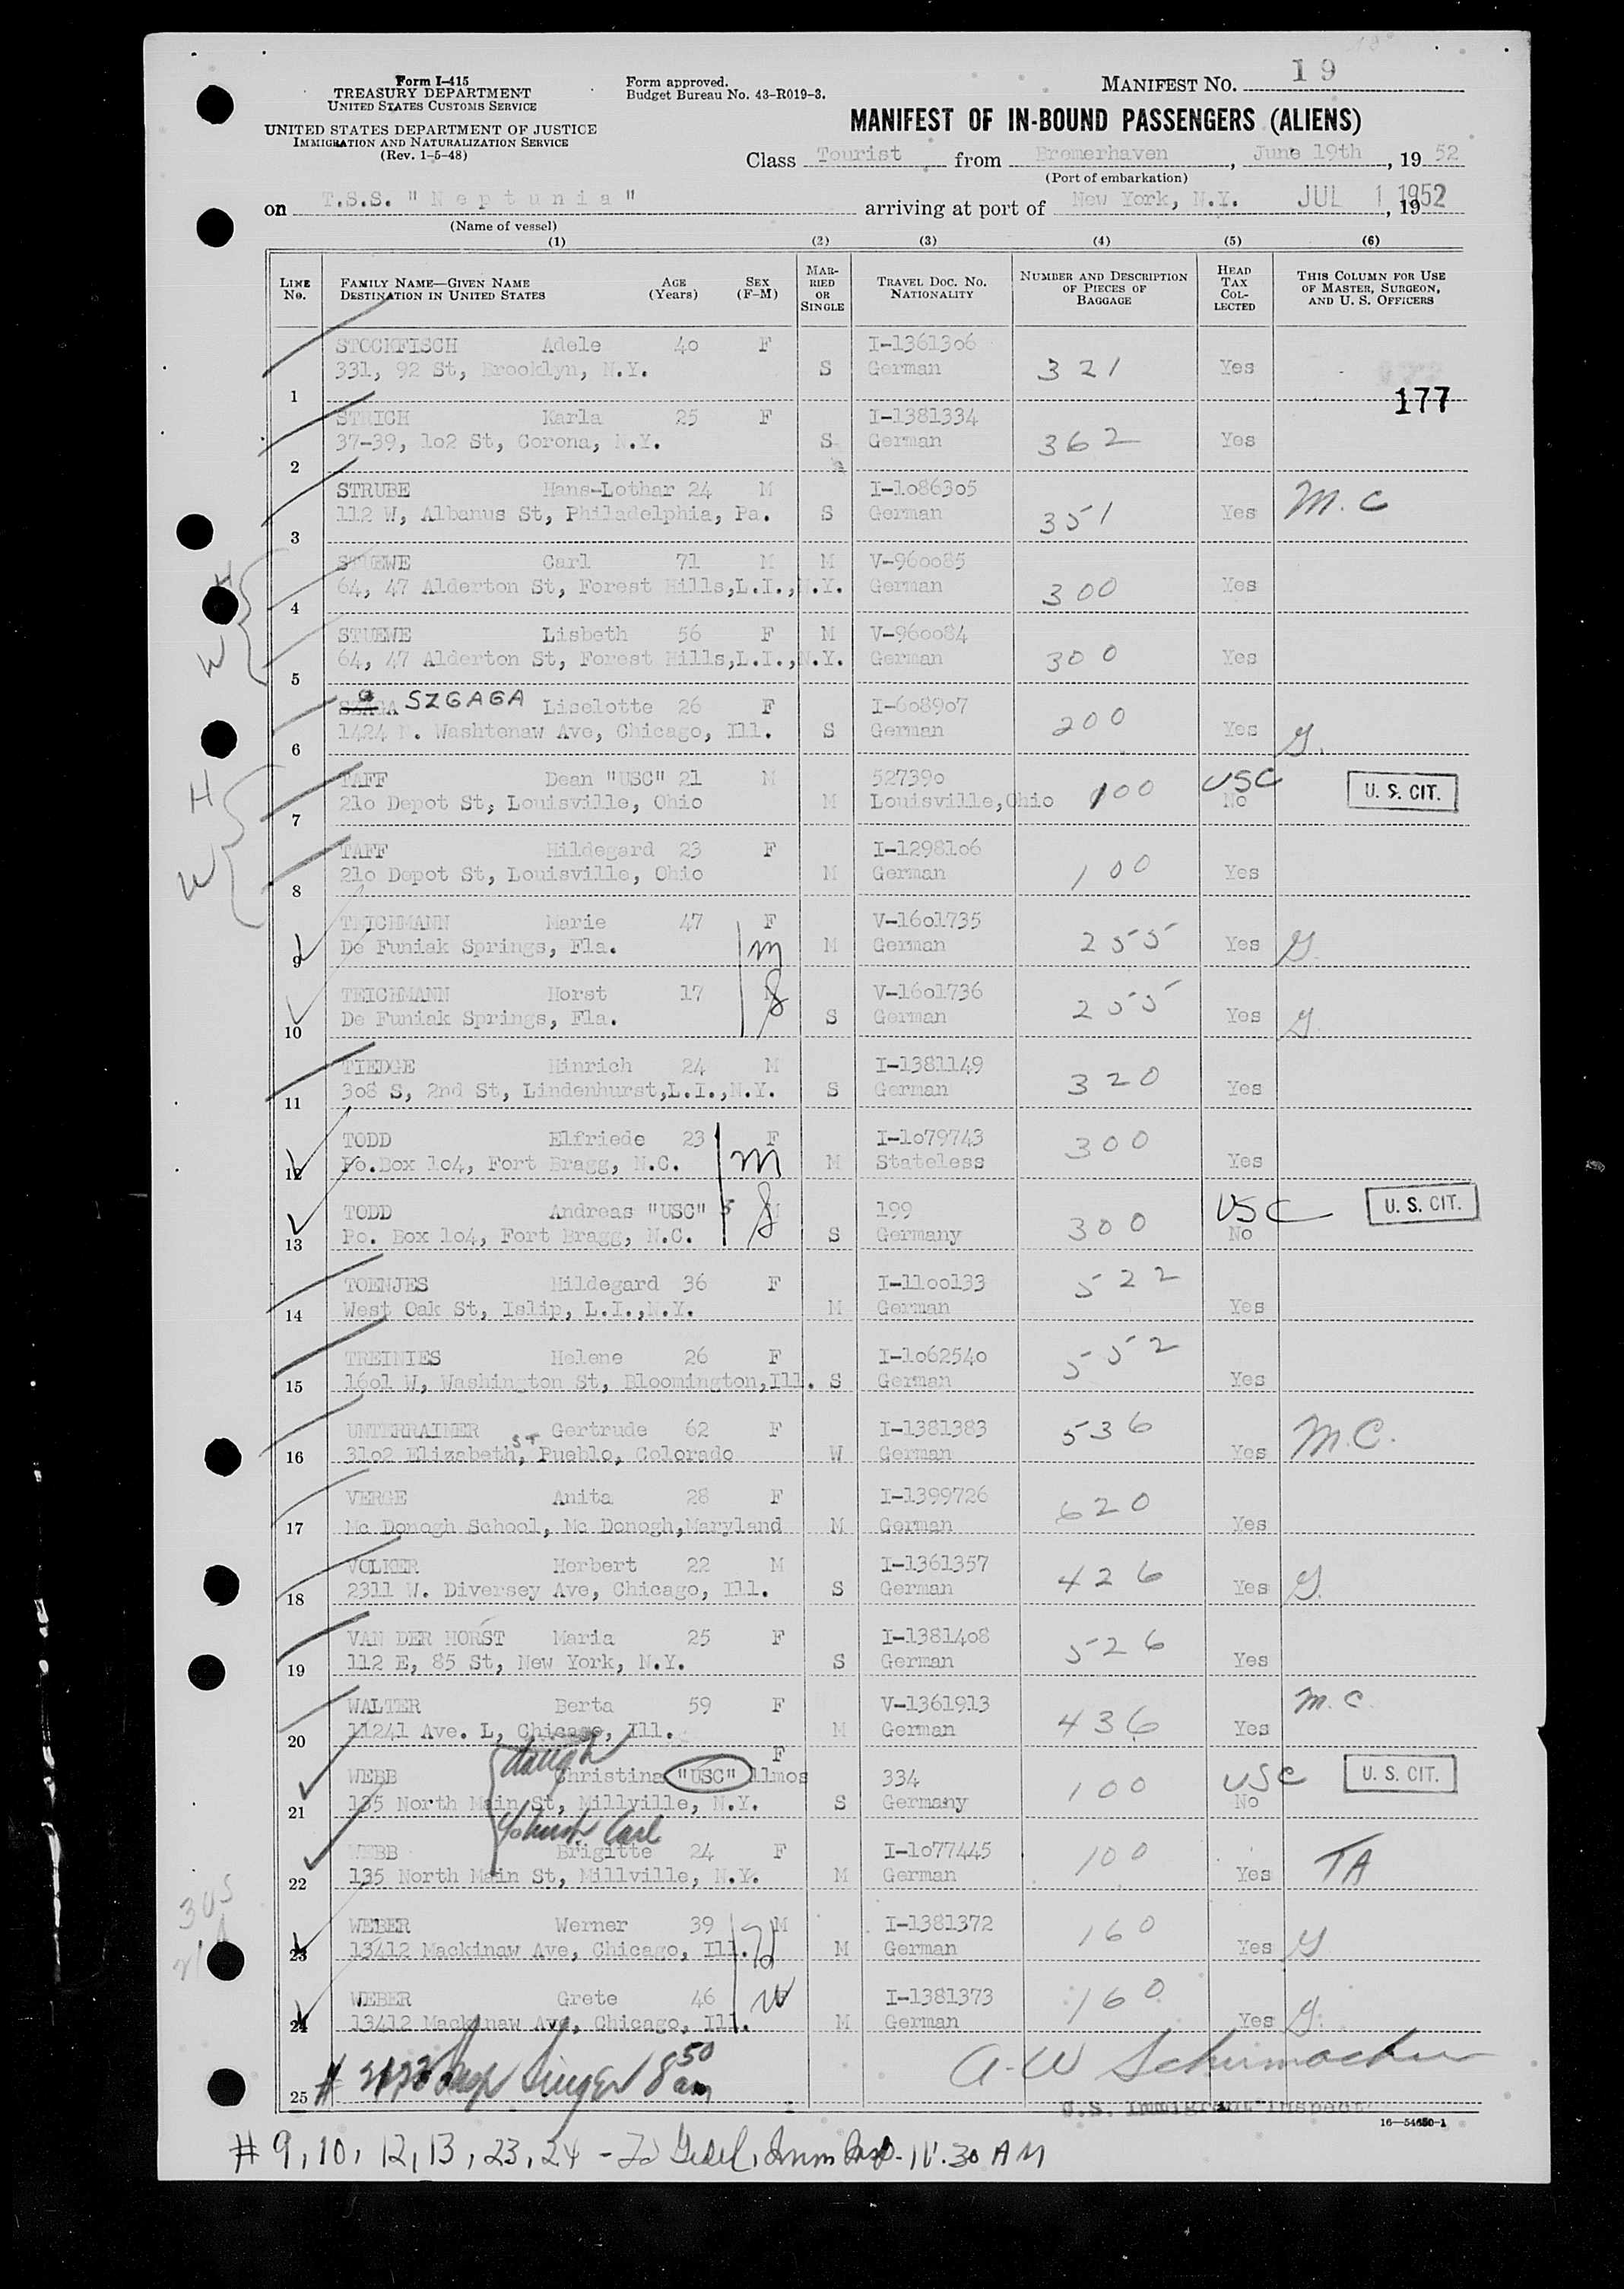 Form I-415
TREASURY DEPARTMENT
UNITED STATES CUSTOMS SERVICE
UNITED STATES DEPARTMENT OF JUSTICE
IMMIGRATION AND NATURALIZATION SERVICE
(Rev. 1-5-48)
Form approved.
Budget Bureau No. 43-R019-3.
MANIFEST NO. 19
MANIFEST OF IN-BOUND PASSENGERS (ALIENS)
Class Tourist from Bremerhaven, June 19th, 19 52
(Port of embarkation)
on T.S.S. "Neptunia" arriving at port of New York, N.Y. JUL 1 1952, 19
(Name of vessel)
(1) (2) (3) (4) (5) (6)
LINE No. FAMILY NAME—GIVEN NAME DESTINATION IN UNITED STATES AGE (Years) SEX (F-M) MARRIED OR SINGLE TRAVEL DOC. NO. NATIONALITY NUMBER AND DESCRIPTION OF PIECES OF BAGGAGE HEAD TAX COLLECTED THIS COLUMN FOR USE OF MASTER, SURGEON, AND U. S. OFFICERS
STOCKFISCH Adele 40 F I-1361306
331, 92 St, Brooklyn, N.Y. S German 321 Yes
1 177
STRICH Karla 25 F I-1381334
37-39, 1o2 St, Corona, N.Y. S German 362 Yes
2
STRUBE Hans-Lothar 24 M I-1o86305
112 W, Albanus St, Philadelphia, Pa. S German 351 Yes M.C
3
STUEWE Carl 71 M M V-960085
64, 47 Alderton St, Forest Hills,L.I.,N.Y. German 300 Yes
H 4
STUEWE Lisbeth 56 F M V-960084
64, 47 Alderton St, Forest Hills,L.I.,N.Y. German 300 Yes
W 5
SZAGA SZGAGA Liselotte 26 F I-6o89o7
1424 N. Washtenaw Ave, Chicago, Ill. S German 200 Yes G.
6
TAFF Dean "USC" 21 M 527390 USC U. S. CIT.
H 21o Depot St, Louisville, Ohio M Louisville,Ohio 100 No
7
TAFF Hildegard 23 F I-1298106
W 21o Depot St, Louisville, Ohio M German 100 Yes
8
TEICHMANN Marie 47 F V-16o1735
De Funiak Springs, Fla. m M German 255 Yes G.
9
TEICHMANN Horst 17 V-16o1736
De Funiak Springs, Fla. S S German 255 Yes G.
10
TIEDGE Hinrich 24 M I-1381149
308 S, 2nd St, Lindenhurst,L.I.,N.Y. S German 320 Yes
11
TODD Elfriede 23 F I-1o79743 300
Po.Box 1o4, Fort Bragg, N.C. m M Stateless Yes
12
TODD Andreas "USC" 5 M 199 USC U. S. CIT.
Po. Box 1o4, Fort Bragg, N.C. S S Germany 300 No
13
TOENJES Hildegard 36 F I-1100133 522
West Oak St, Islip, L.I.,N.Y. M German Yes
14
TREINIES Helene 26 F I-1o62540 552
16o1 W, Washington St, Bloomington,Ill. S German Yes
15
UNTERRAINER Gertrude 62 F I-1381383 536
31o2 Elizabeth, ST Pueblo, Colorado W German Yes M.C.
16
VERGE Anita 28 F I-1399726 620
Mc Donogh School, Mc Donogh,Maryland M German Yes
17
VOLKER Herbert 22 M I-1361357 426
2311 W. Diversey Ave, Chicago, Ill. S German Yes G.
18
VAN DER HORST Maria 25 F I-1381408 526
112 E, 85 St, New York, N.Y. S German Yes
19
WALTER Berta 59 F V-1361913 M.C.
11241 Ave. L, Chicago, Ill. M German 436 Yes
20
daugh F
WEBB Christina "USC" 11mos 334 100 USC U. S. CIT.
135 North Main St, Millville, N.Y. S Germany No
21
WEBB Brigitte 24 F I-1o77445 100
135 North Main St, Millville, N.Y. M German Yes TA
22
WEBER Werner 39 M I-1381372 160
13412 Mackinaw Ave, Chicago, Ill. M German Yes G
23
WEBER Grete 46 W I-1381373 160
13412 Mackinaw Ave, Chicago, Ill. M German Yes G.
24
Singer 8 50 am A. W Schumacher
25 U.S. Immigrant Inspect
16—54650-1
# 9, 10, 12, 13, 23, 24 - 11.30 AM